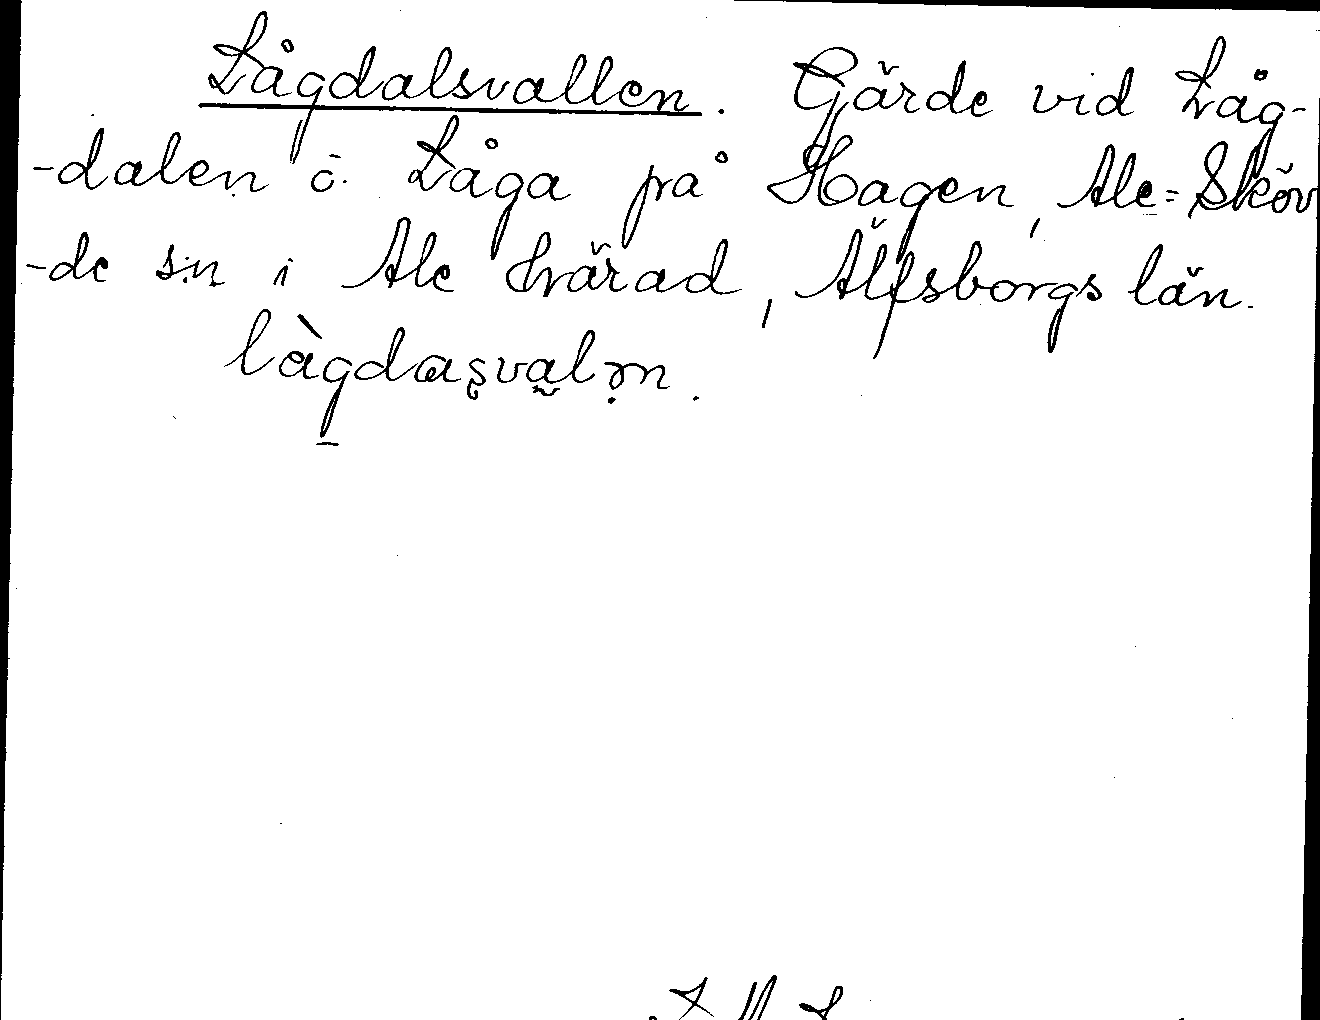 Lågdalsvallen. Gärde vid Låg-
-dalen o. Låga på Hagen, Ale-Sköv
-de sn i Ale härad, Älfsborgs län.